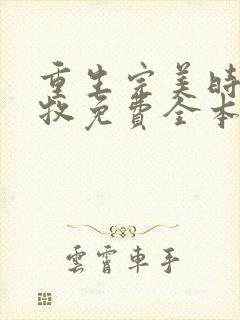 重生完美时
牧免費全本
雲霄車手